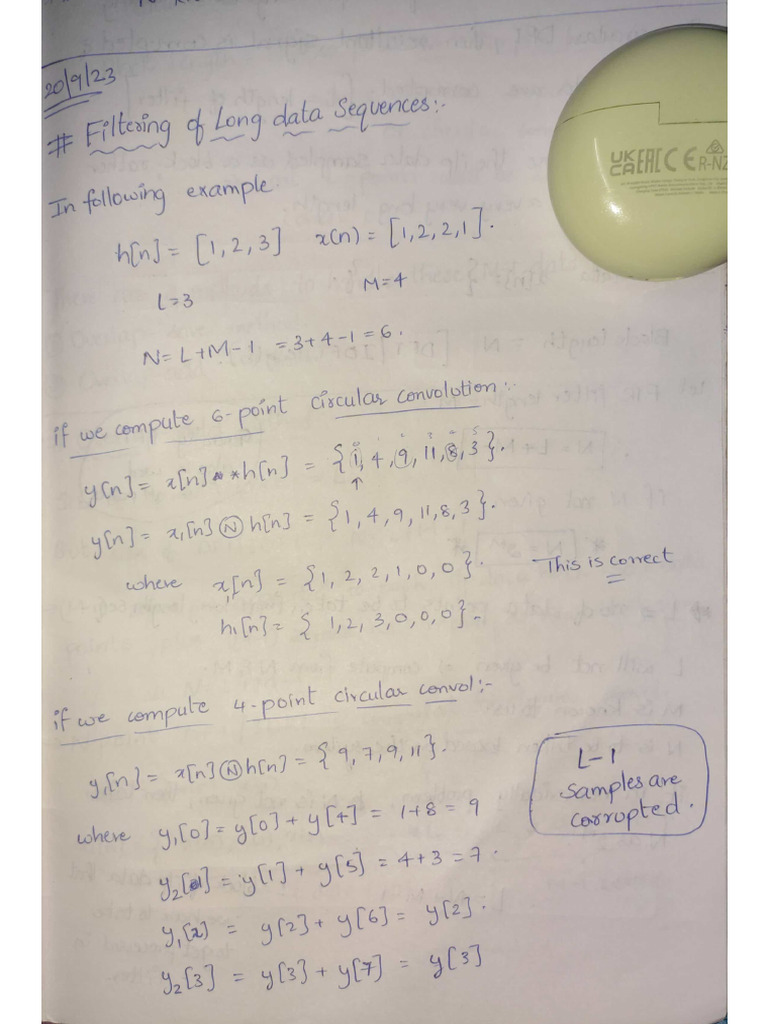 20/9/23
# Filtering of Long data Sequences:-
In following example.
h[n] = [1, 2, 3] x(n) = [1, 2, 2, 1].
L=3 M=4
N= L+M-1 = 3+4-1 = 6.
if we compute 6-point circular convolution:-
y[n] = x[n] * *h[n] = {1, 4, 9, 11, 8, 3}.
↑
y[n] = x₁[n] Ⓝ h[n] = {1, 4, 9, 11, 8, 3}.
where x₁[n] = {1, 2, 2, 1, 0, 0}. This is correct
h₁[n] = { 1, 2, 3, 0, 0, 0}.
if we compute 4-point circular convol:-
y₁[n] = x[n] Ⓝ h[n] = { 9, 7, 9, 11}.
L-1
Samples are
corrupted.
where y₁[0] = y[0] + y[4] = 1+8 = 9
y₂[1] = y[1] + y[5] = 4+3 = 7.
y₁[2] = y[2] + y[6] = y[2].
y₂[3] = y[3] + y[7] = y[3]
UK CA EAC CE R-NZ